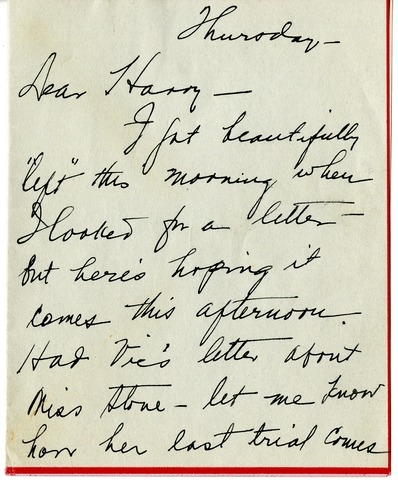 Thursday –
Dear Harry –
I got beautifully
"left" this morning when
I looked for a letter –
but here's hoping it
comes this afternoon.
Had Vic's letter about
Miss Stone – let me know
how her last trial comes